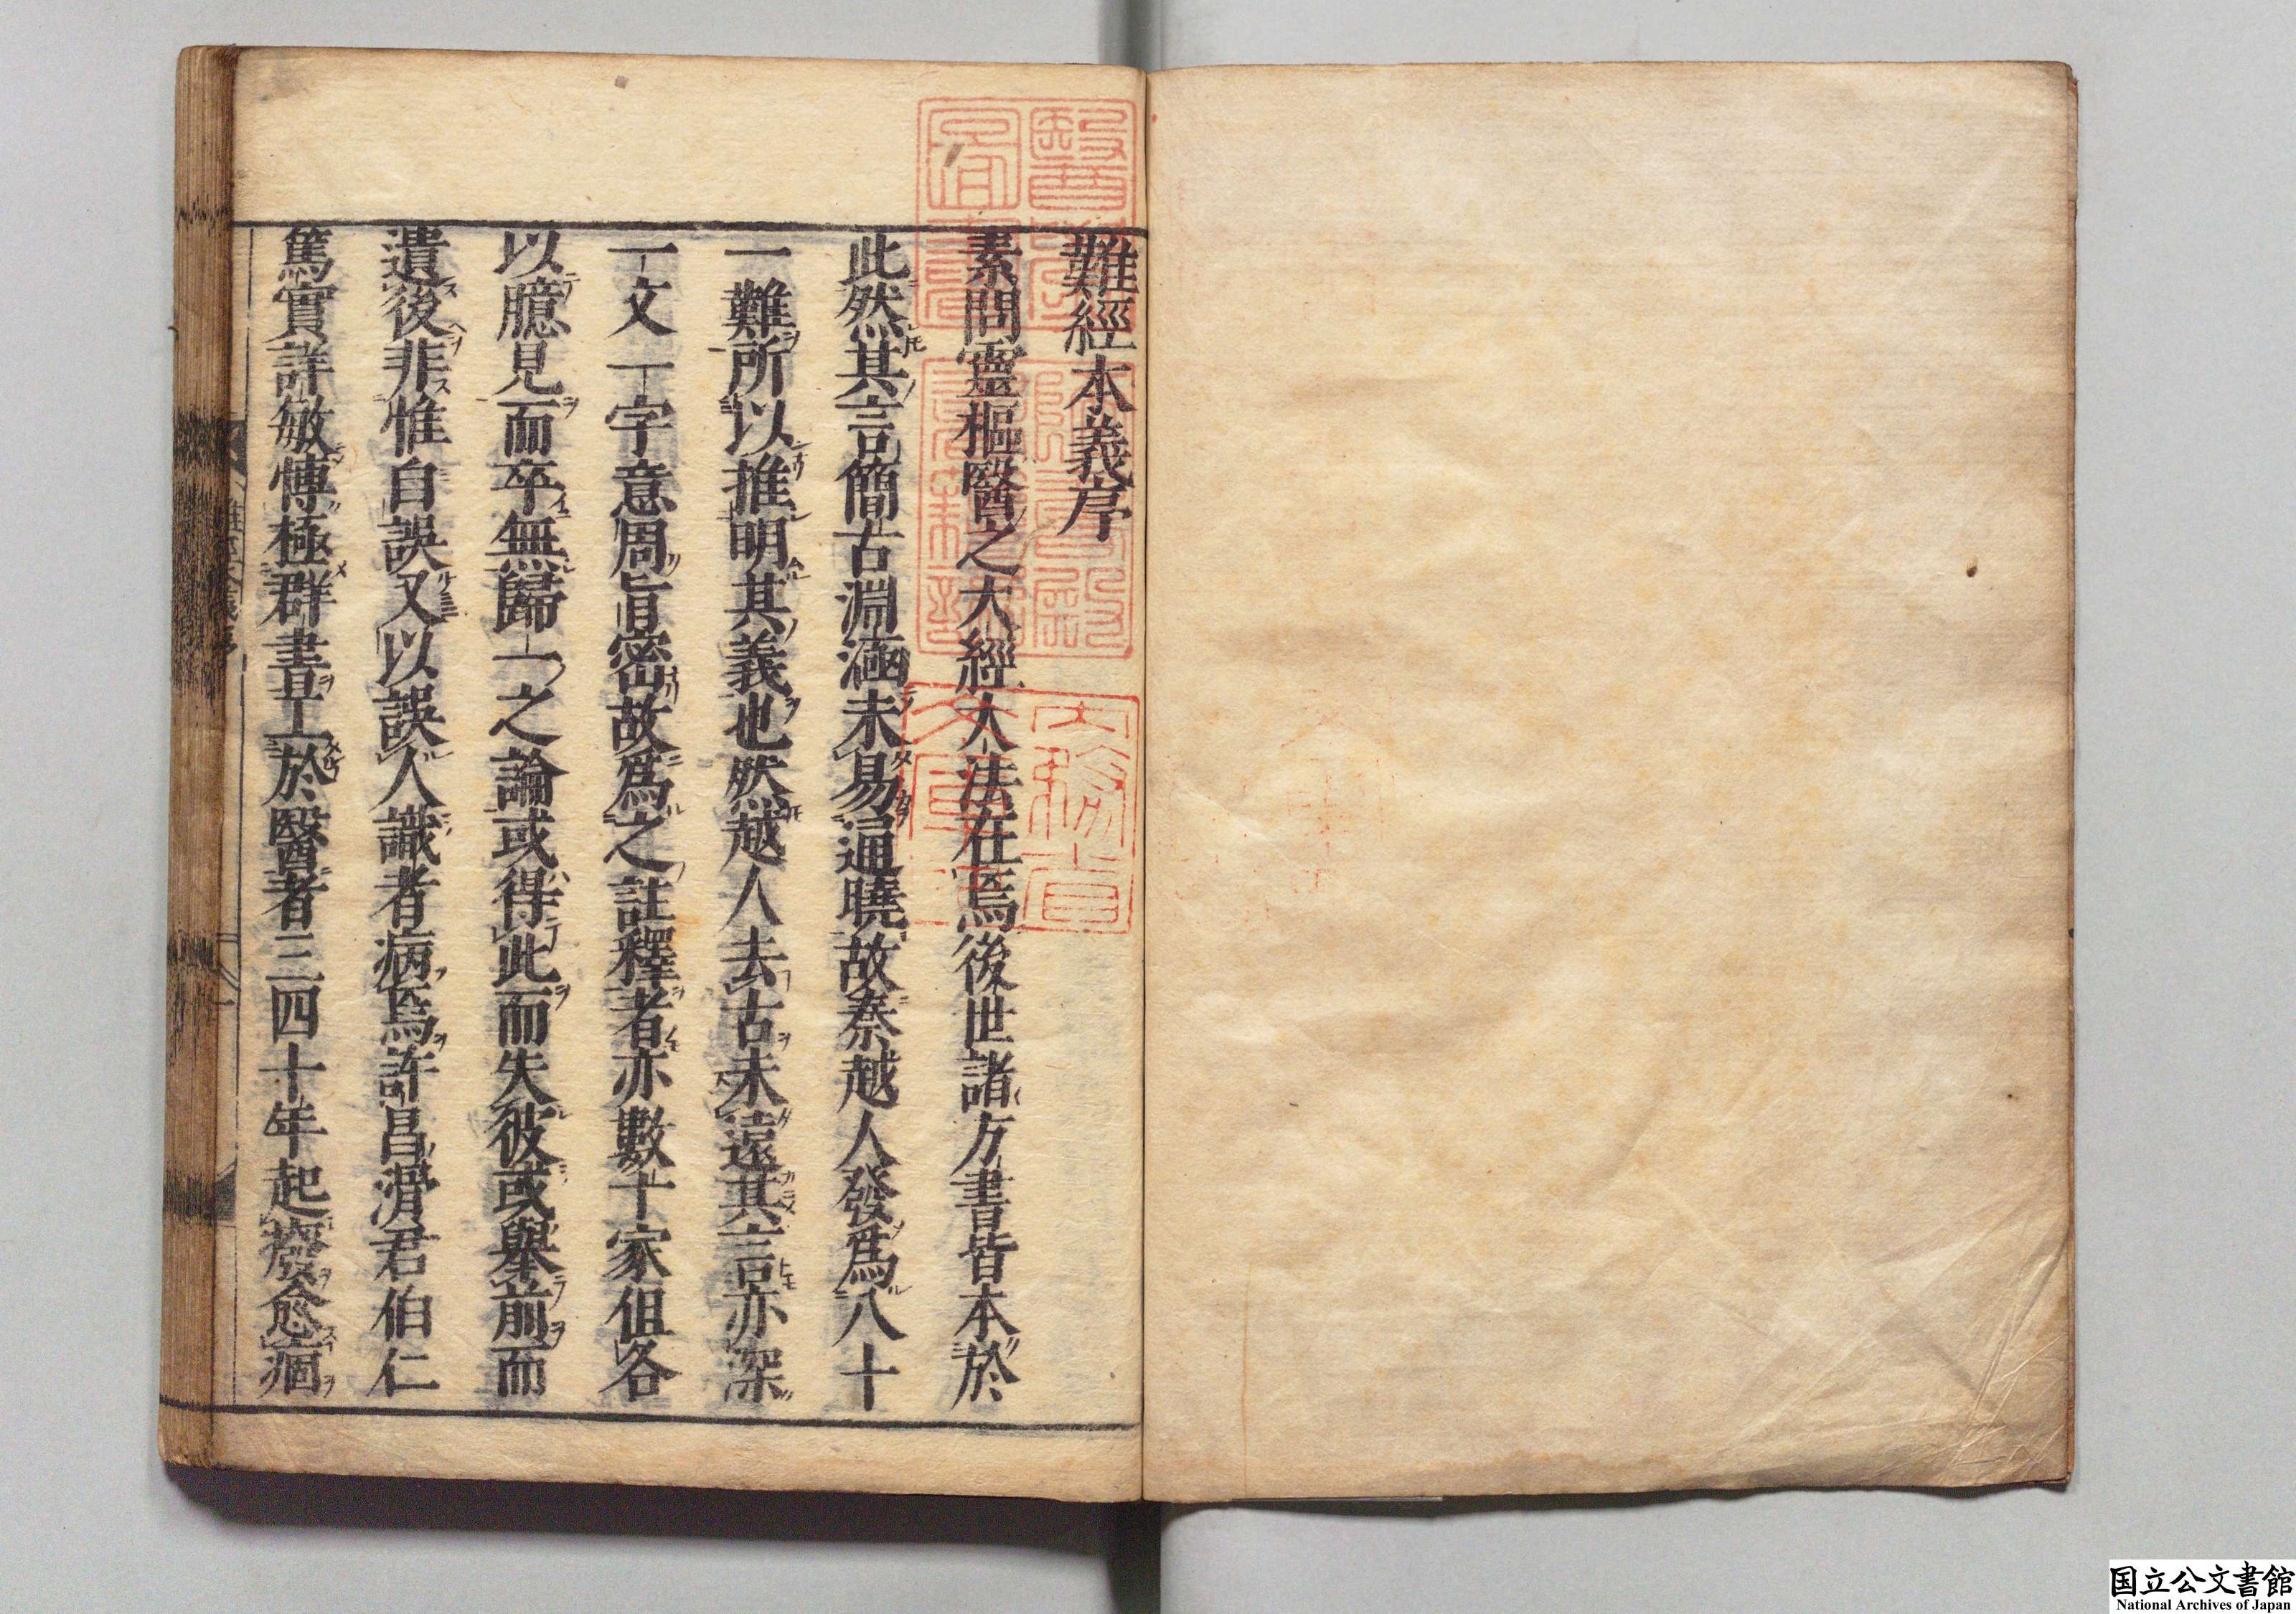 難經本義序
素問靈樞醫之大經大法在焉後世諸方書皆本於
此然其言簡古淵涵未易通曉故秦越人發爲八十
一難所以推明其義也然越人去古未遠其言亦深
一文一字意周旨密故爲之註釋者亦數十家但各
以臆見而卒無歸一之論或得此而失彼或擧前而
遺後非惟自誤又以誤人識者病焉許昌滑君伯仁
篤實詳敏博極群書工於醫者三四十年起癈愈痼
内務省文庫印
国立公文書館
National Archives of Japan